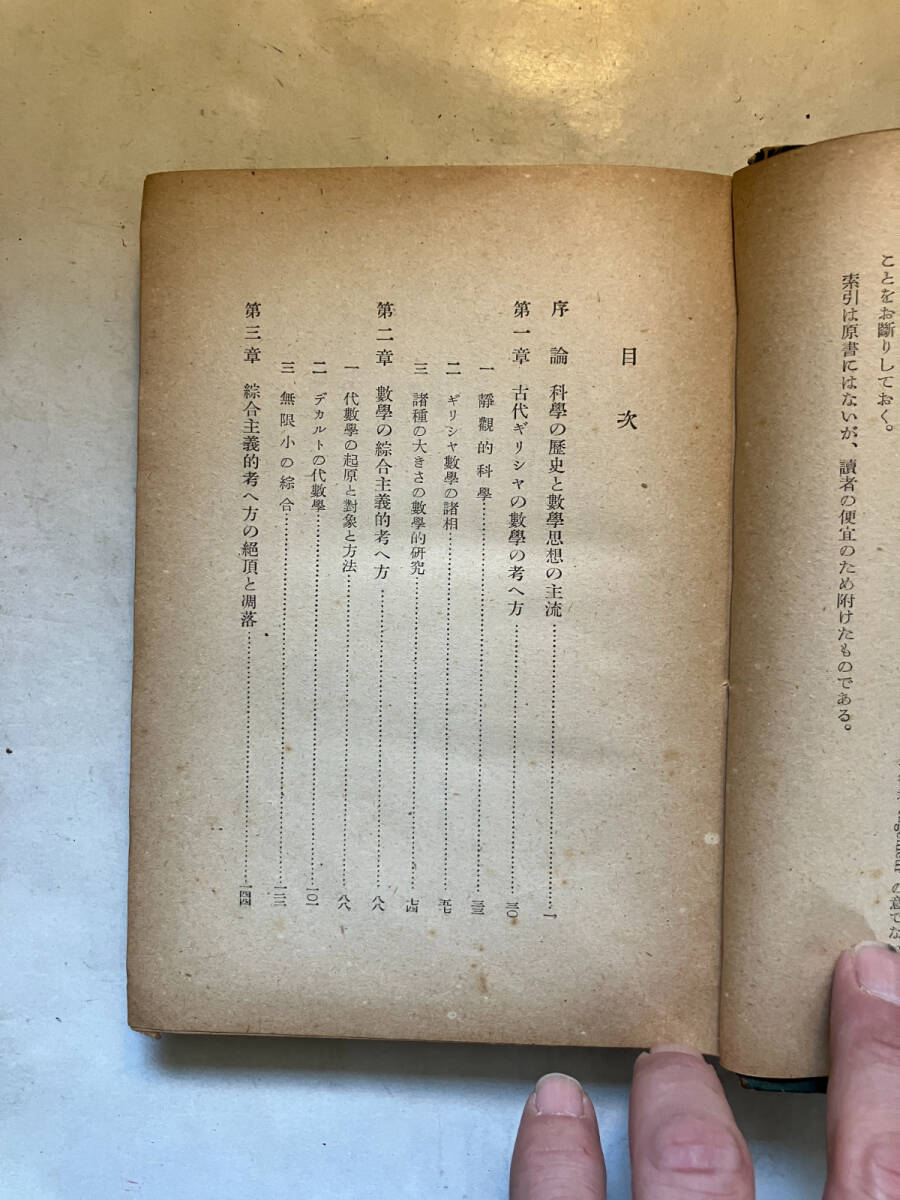 ことをお斷りしておく。
索引は原書にはないが、讀者の便宜のため附けたものである。
の意でな
目次
序論 科學の歷史と數學思想の主流……一
第一章 古代ギリシャの數學の考へ方……三〇
一 靜觀的科學……三三
二 ギリシャ數學の諸相……五七
三 諸種の大きさの數學的硏究……七四
第二章 數學の綜合主義的考へ方……八八
一 代數學の起原と對象と方法……八八
二 デカルトの代數學……一〇一
三 無限小の綜合……一二三
第三章 綜合主義的考へ方の絕頂と凋落……一四四